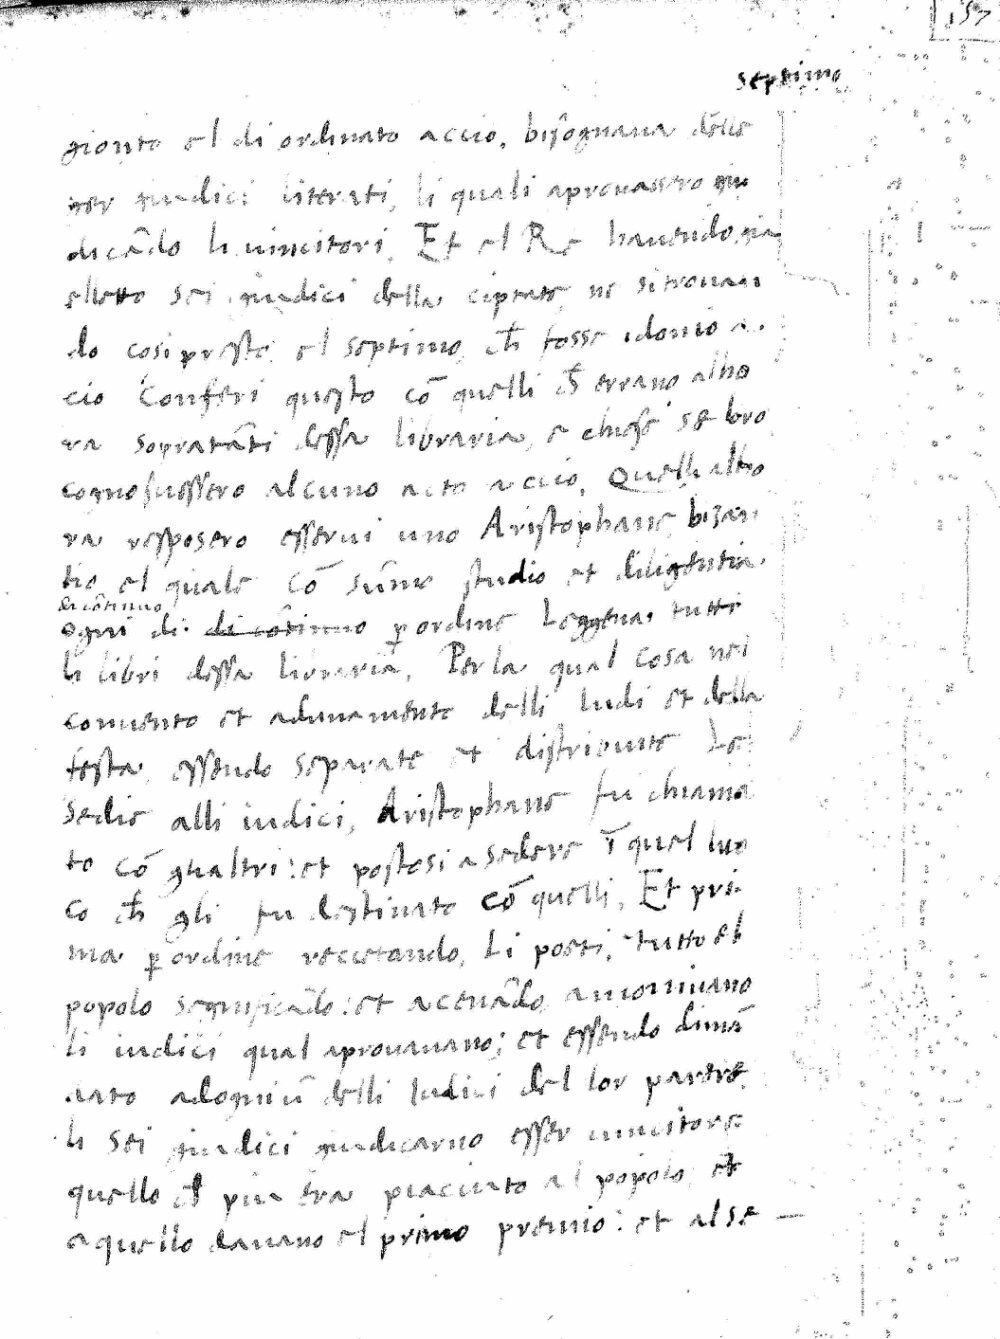 157
septimo
gionto el di ordinato accio, bisognava delle
ger giudici literati, li quali aprouassero giu
dicãdo li uincitori. Et el Re hauendo gia
elletto sei giudici della ciptate ne sitrouan
do cosi presto el septimo, ch̃ fosse idonio a
cio Conferi questo cõ quelli ch̃ errano alho
ra sopratãti dessa libraria, e chiese se loro
cognosuessero alcuno acto accio, Quelli alho
ra resposero esserui uno Aristophane bizan
tio el quale cõ sũmo studio et diligentia
di cõtinuo
ogni di di cõtinuo p ordine Leggeua tutti
li libri dessa libraria, Per la qual cosa nel
conuento et adunamento delli ludi et della
festa essendo separate et distribuite Le
sedie alli iudici, Aristophane fu chiama
to cõ gli altri: et postosi a sedere ĩ quel luo
co ch̃ gli fu destinato cõ quelli, Et pri
ma p ordine reccetando, Li poeti, tutto el
popolo segnificãdo: et acenãdo amonivano
li iudici qual aprouauano; et essendo dimã
dato adogniũ delli Iudici del lor parere
li sei giudici giudicarno esser uincitore
quello ch̃ piu era piaciuto al popolo, et
a quello dauano el primo premio: et al se